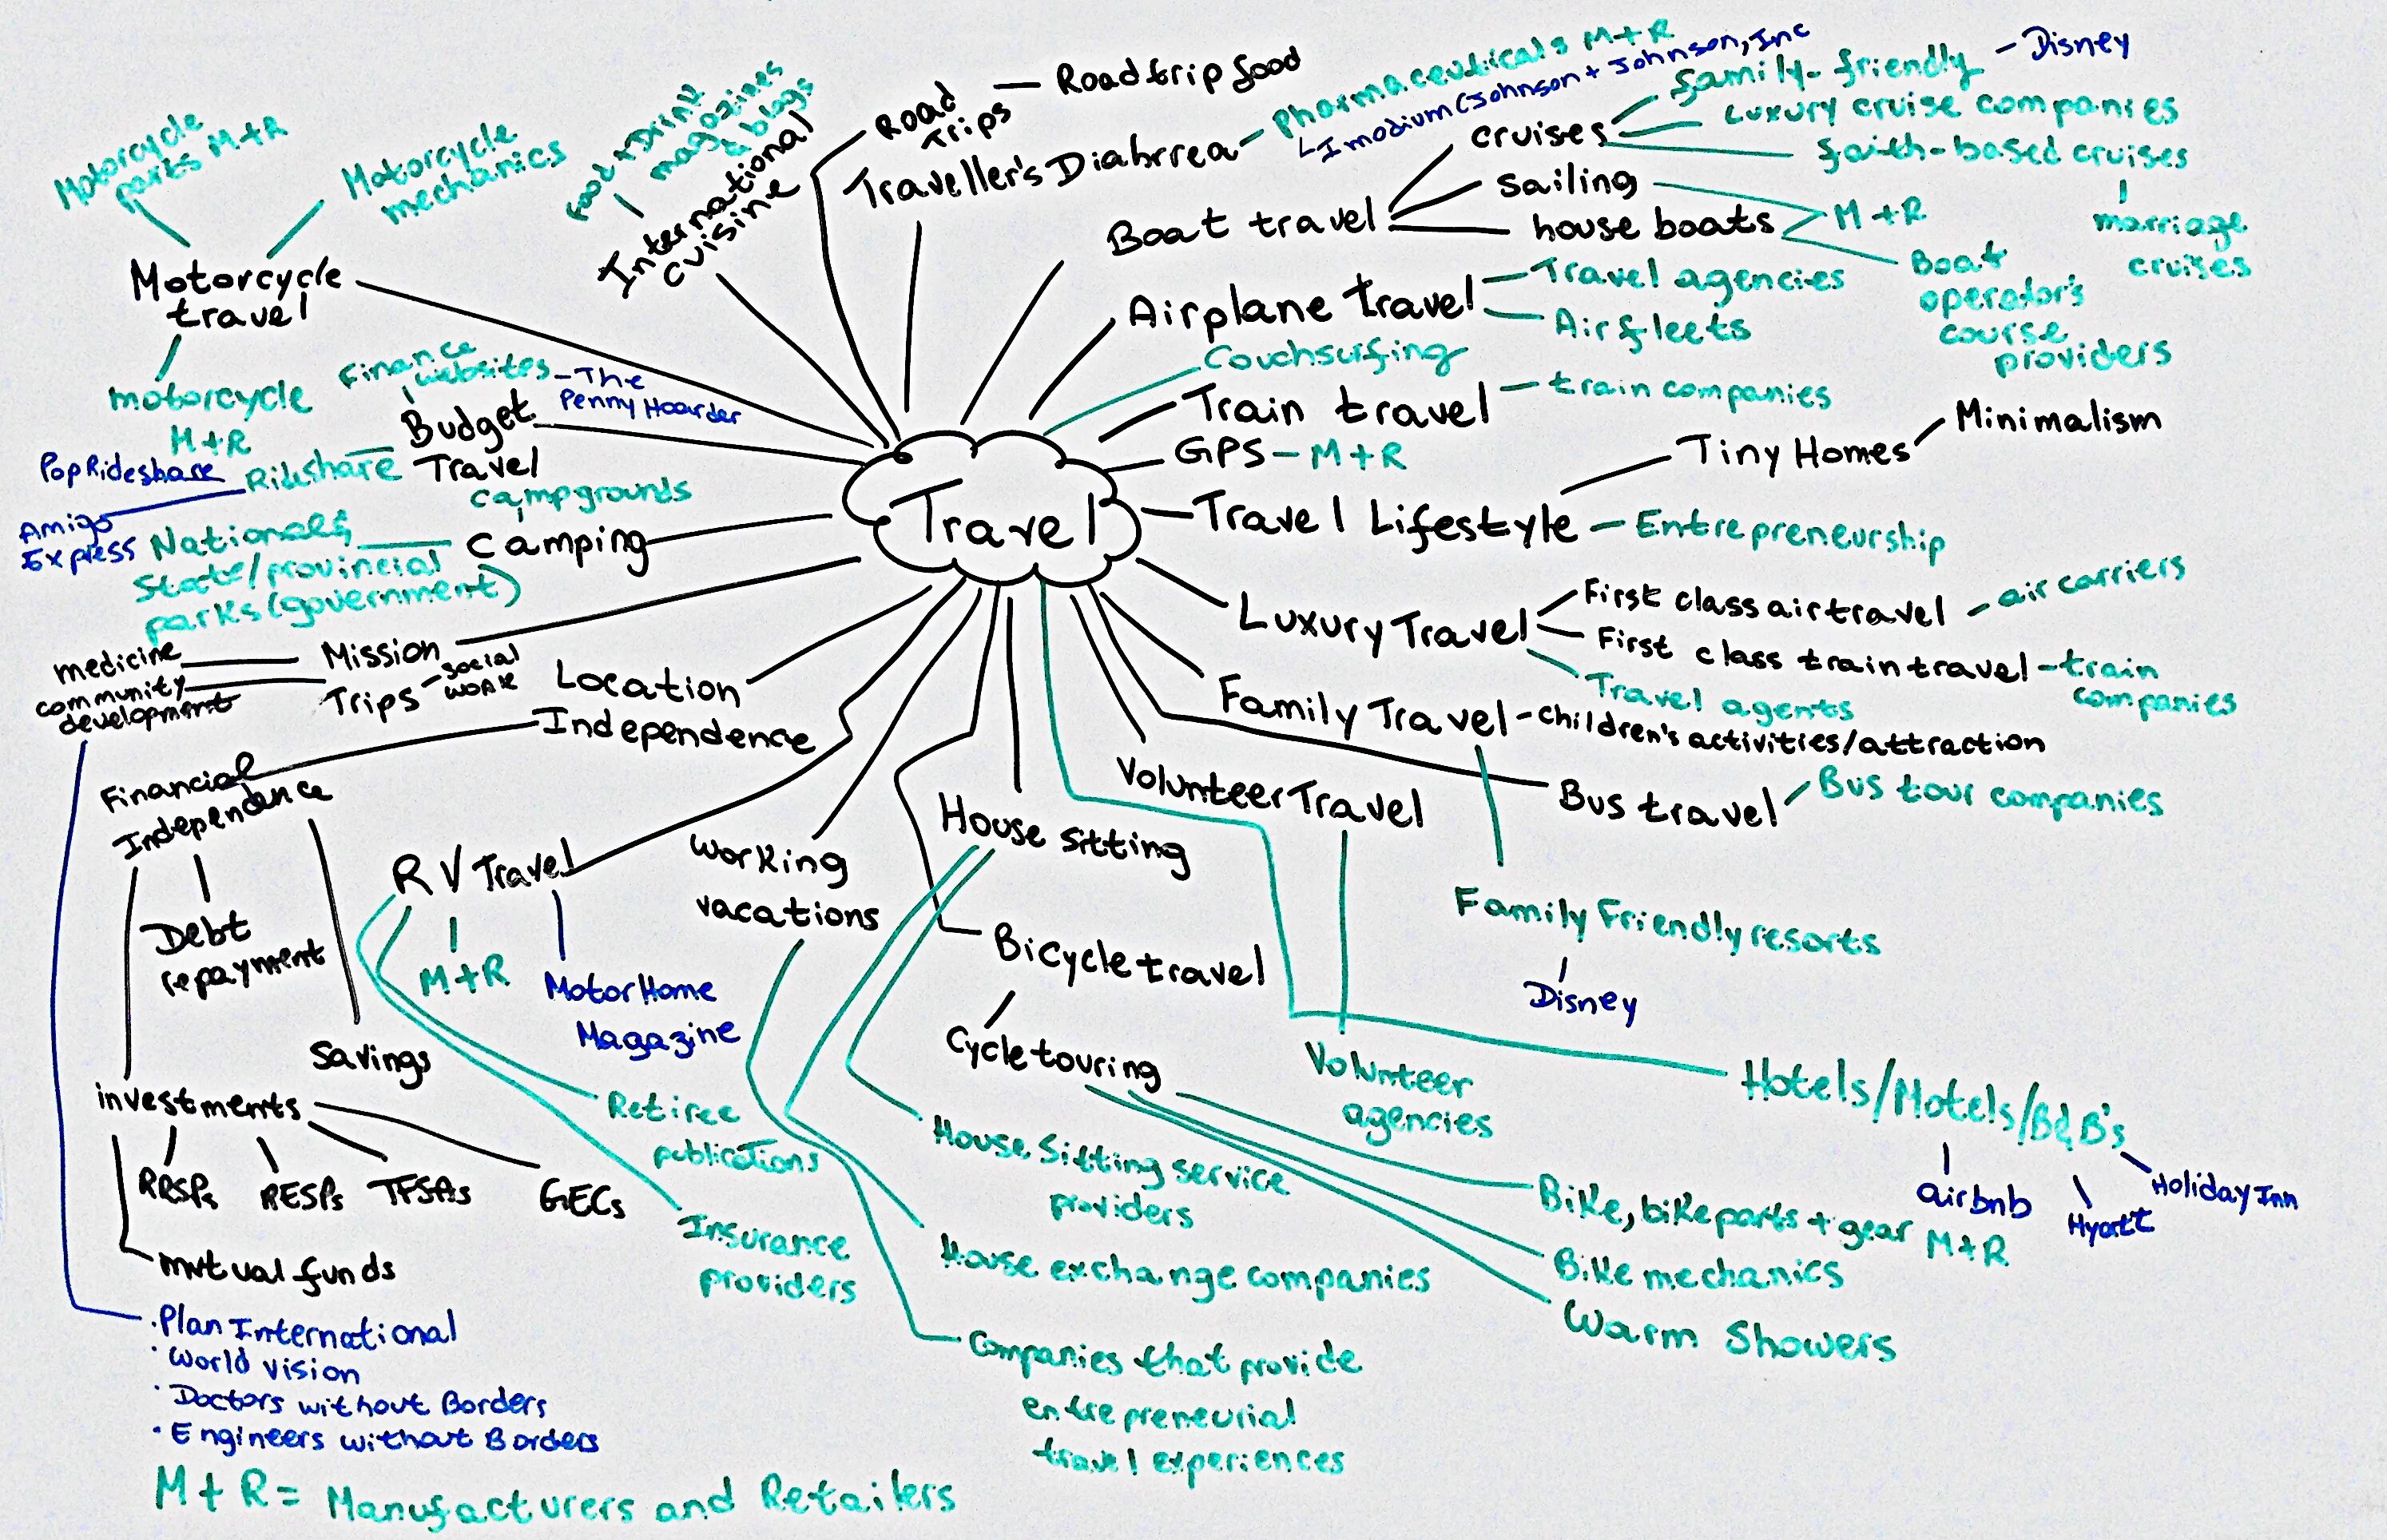 Road Trips
Road trip food
Traveller's Diahrrea
Pharmaceuticals M+R
Imodium (Johnson + Johnson, Inc
Boat travel
cruises
family-friendly
Disney
Luxury cruise companies
faith-based cruises
marriage
cruises
sailing
house boats
M+R
Boat
operator's
course
providers
Airplane travel
Travel agencies
Airfleets
Couchsurfing
Train travel
train companies
GPS - M+R
Travel Lifestyle
Tiny Homes
Minimalism
Entrepreneurship
Luxury Travel
First class air travel
air carriers
First class train travel
train
companies
Travel agents
Family Travel
Children's activities/attraction
Family Friendly resorts
Disney
Bus travel
Bus tour companies
Volunteer Travel
Volunteer
agencies
Hotels/Motels/B&B's
airbnb
Hyatt
Holiday Inn
House sitting
House Sitting service
providers
House exchange companies
Bicycle travel
Cycle touring
Bike, bike parts + gear M+R
Bike mechanics
Warm Showers
Working
vacations
Companies that provide
entrepreneurial
travel experiences
RV Travel
M+R
MotorHome
Magazine
Retiree
publications
Insurance
providers
Location
Independence
Financial
Independence
Debt
repayment
Savings
investments
RRSPs
RESPs
TFSAs
GECs
mutual funds
Mission
Trips
social
work
medicine
community
development
Plan International
World Vision
Doctors without Borders
Engineers without Borders
Camping
campgrounds
National &
State/provincial
parks (government)
Budget
Travel
Finance
websites
The
Penny Hoarder
Rideshare
PopRideshare
Amigo
Express
Motorcycle
travel
Motorcycle
parts M+R
Motorcycle
mechanics
motorcycle
M+R
International
cuisine
Food + Drink
magazines
& blogs
Travel
M+R = Manufacturers and Retailers